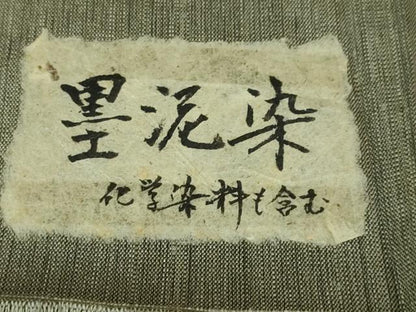 墨泥染
化学染料も含む